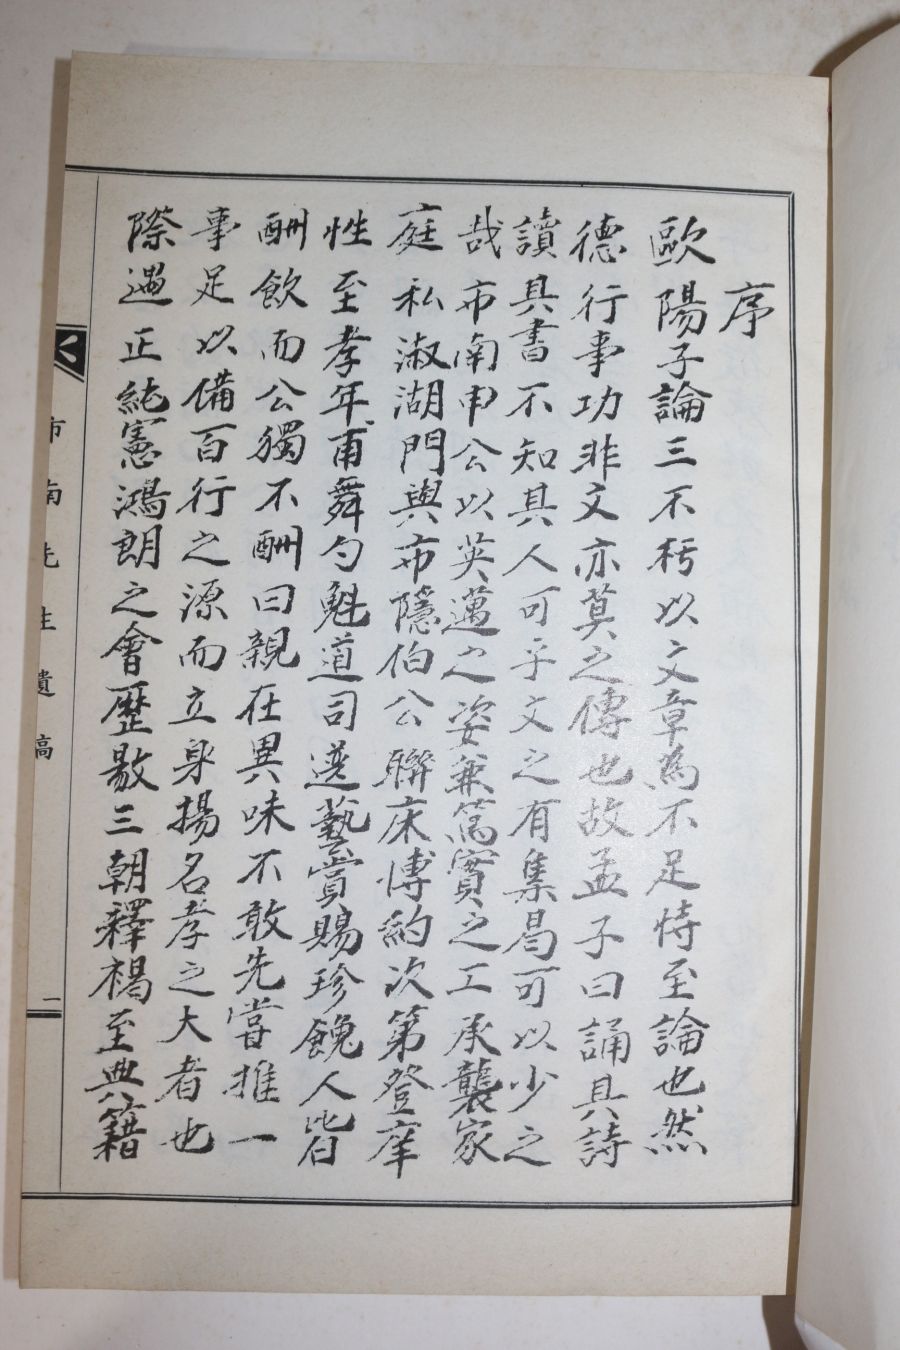 序
歐陽子論三不朽以文章為不足恃至論也然
德行事功非文亦莫之傳也故孟子曰誦其詩
讀其書不知其人可乎文之有集曷可以少之
哉市南申公以英邁之姿兼篤實之工承襲家
庭私淑湖門與市隱伯公聯床博約次第登庠
性至孝年甫舞勺魁道司選藝賞賜珍餽人皆
酬飮而公獨不酬曰親在異味不敢先嘗推一
事足以備百行之源而立身揚名孝之大者也
際遇正純憲鴻朗之會歷敭三朝釋褐至典籍
市南先生遺稿
二